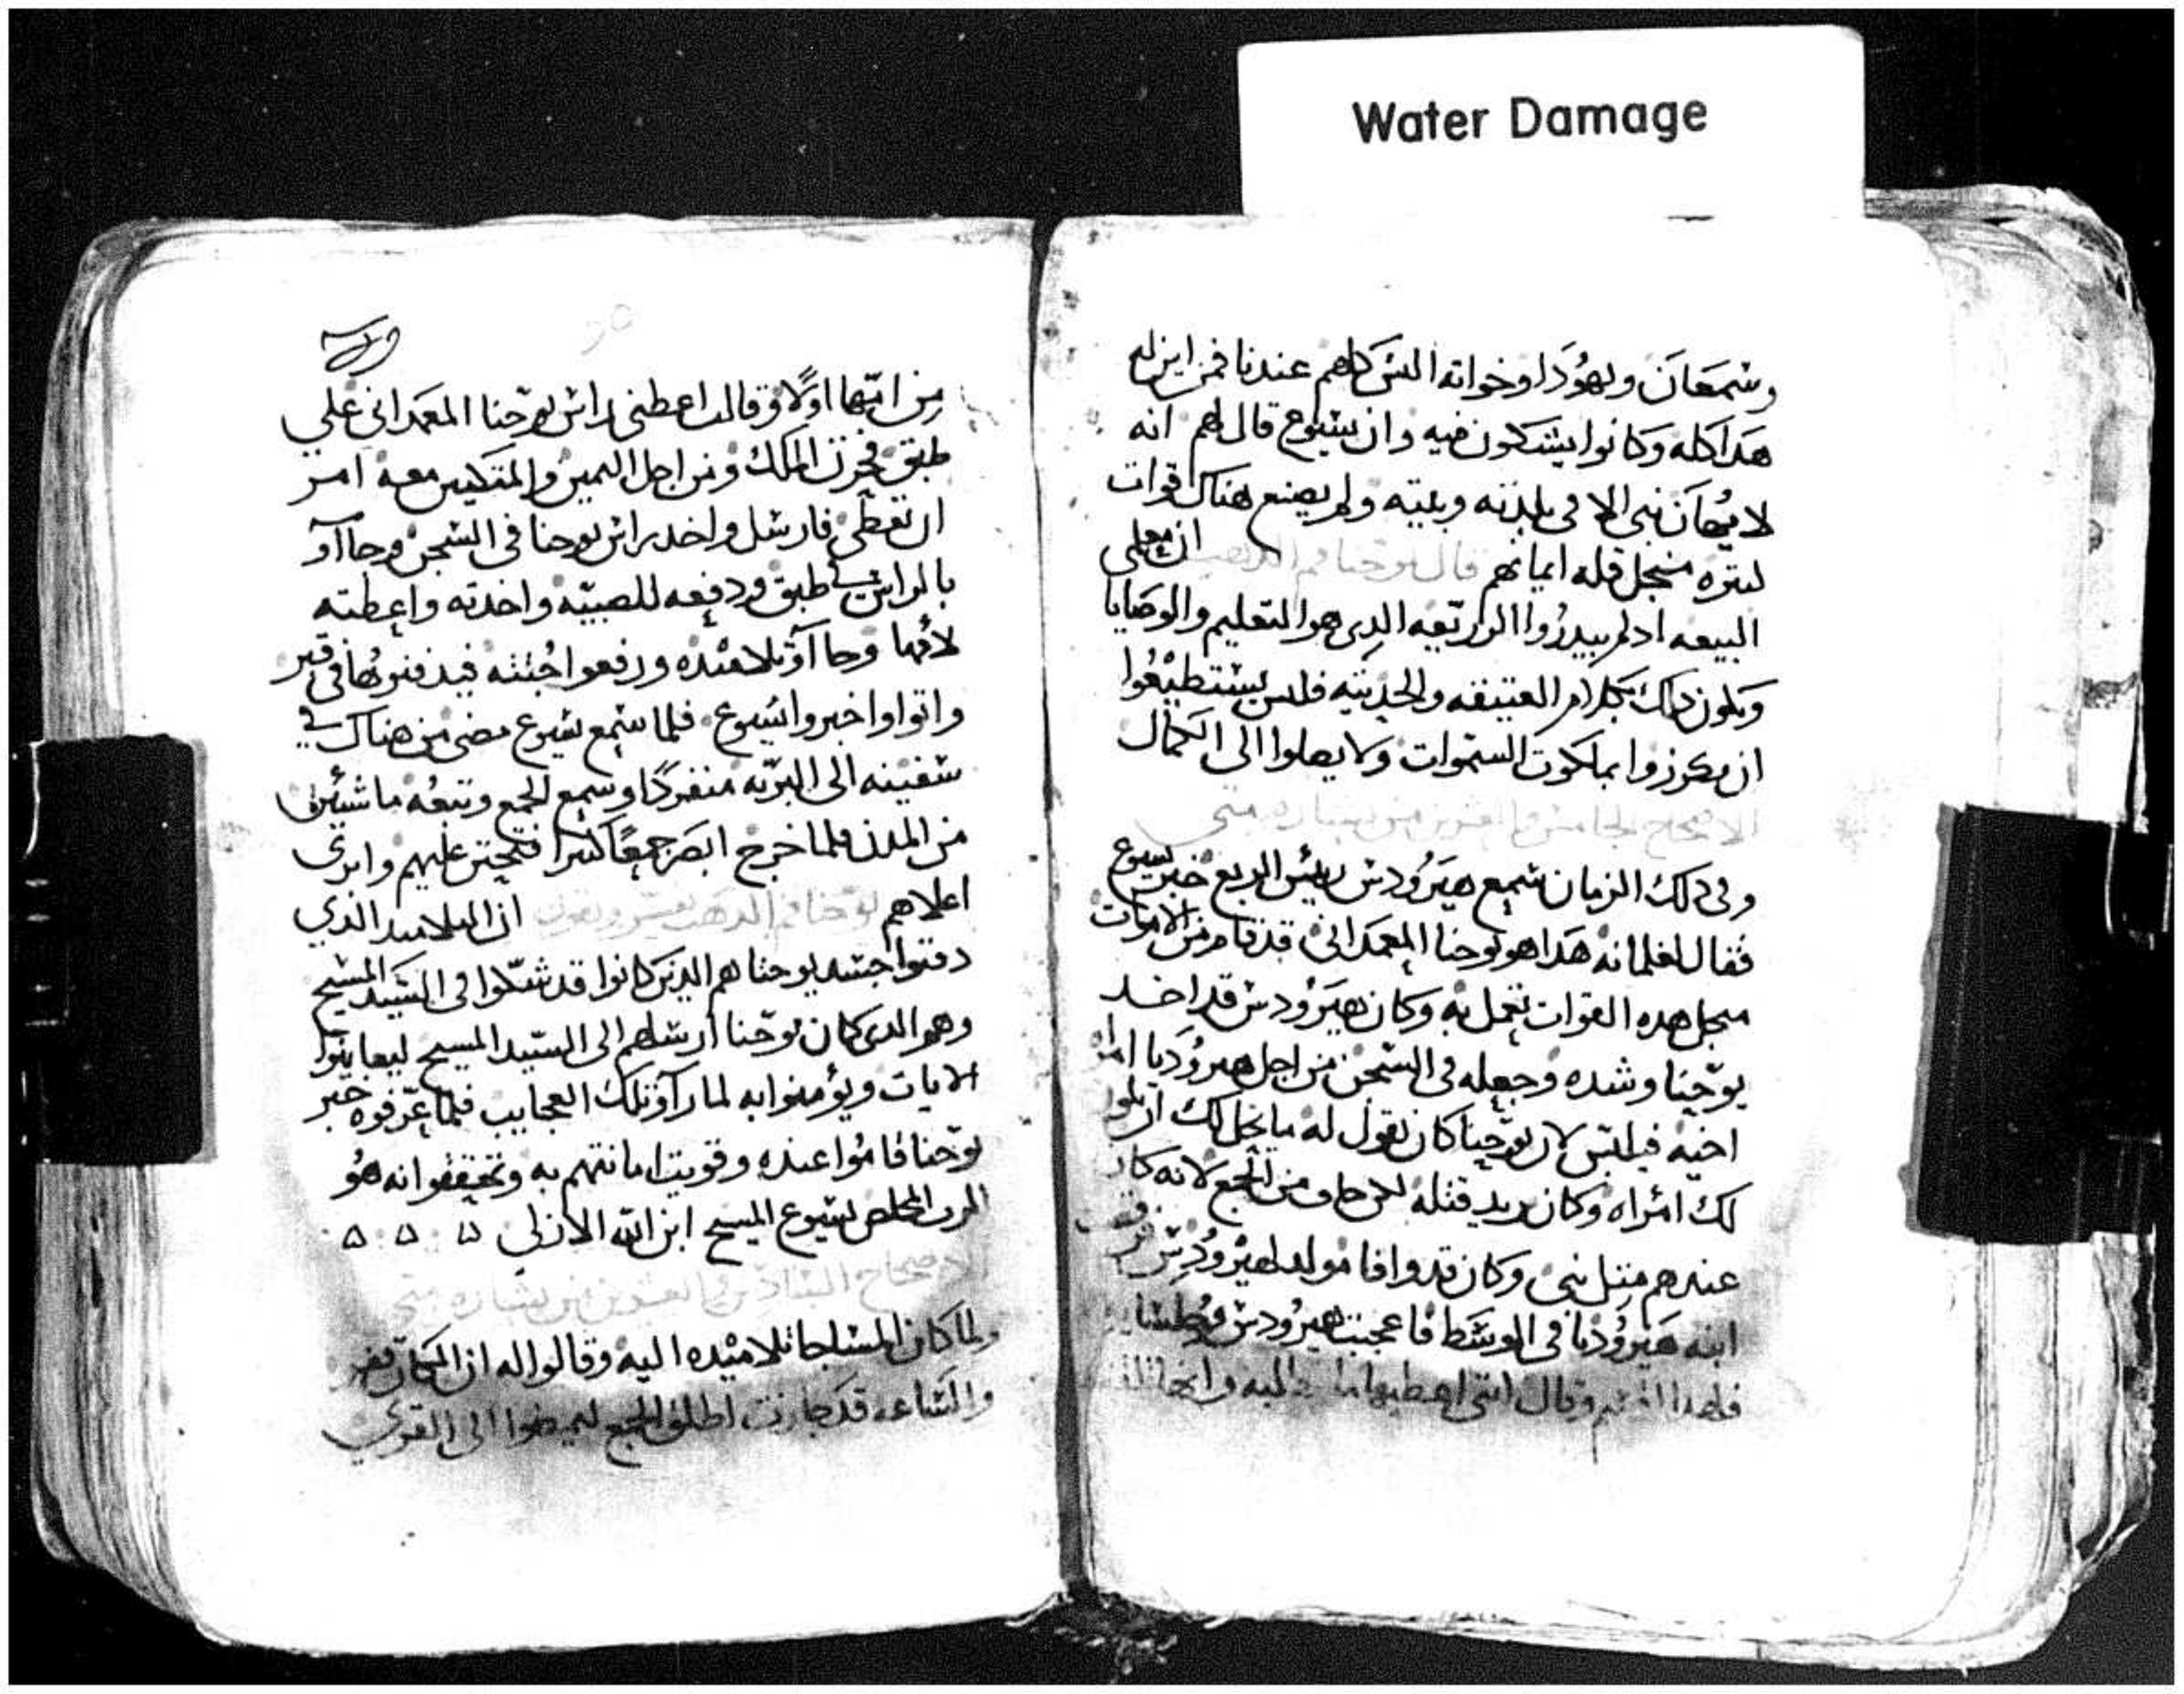 Water Damage
وشمعان ويهودا وخواته اليس كلهم عندنا فمن اين له
هدا كله وكانوا يشكون فيه وان يسوع قال لهم انه
لا يهان نبي الا في بلدته وبيته ولم يصنع هناك قوات
كتيره منجل قله ايمانهم قال يوحنا فم الدهب ان معلمى
البيعه ادلم يبدروا الزريعه الدى هو التعليم والوصايا
ويكون دلك بكلام العتيقه والحديته فليس يستطيعوا
ان يكرزوا بملكوت السموات ولا يصلوا الى الكمال
الاصحاح الخامس والعشرين من بشاره متى
وفي دلك الزمان سمع هيرودس رييس الربع خبر يسوع
فقال لغلمانه هدا هو يوحنا المعمدانى قد قام من الاموات
منجل هده القوات تعمل به وكان هيرودس قد اخد
يوحنا وشده وجعله في السجن من اجل هيروديا امراه
اخيه فيلبس لان يوحنا كان يقول له ما يحل لك ان تكون
لك امراه وكان يريد قتله لكن خاف من الجمع لانه كان
عندهم متل نبي وكان قد وافا مولد لهيرودس
ابنه هيروديا في الوسط فاعجبت هيرودس
فلهدا اقسم وقال اننى اعطيها ما تطلبه وانها
من امها اولا وقالت اعطنى راس يوحنا المعمدانى علي
طبق فحزن الملك ومن اجل اليمين والمتكيين معه امر
ان تعطى فارسل واخد راس يوحنا في السجن وجاآو
بالراس على طبق ودفعه للصبيه واخدته واعطته
لأمها وجاآو تلاميده ورفعوا جتته فيدفنوها في قبر
واتوا واخبروا يسوع فلما سمع يسوع مضى من هناك في
سفينه الى البريه منفردا وسمع الجمع وتبعه ماشيين
من المدن فلما خرج ابصر جمعا كتيرا فتحنن عليهم وابري
اعلاهم يوحنا فم الدهب يفسر ويقول ان التلاميد الذي
دفنوا جسد يوحنا هم الدين كانوا قد شكوا في السيد المسيح
وهو الدى كان يوحنا ارسلهم الى السيد المسيح ليعاينوا
الايات ويؤمنوا به لما رآو تلك العجايب فلما عرفوه خبر
يوحنا قاموا عنده وقويت امانتهم به وتحققوا انه هو
الرب المخلص يسوع المسيح ابن الله الازلي
الاصحاح السادس والعشرين من بشاره متى
ولما كان المسا جا تلاميده اليه وقالوا له ان المكان قفر
والساعه قد جازت اطلق الجمع ليمضوا الى القري